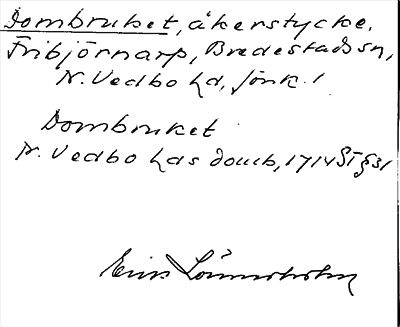 Dombruket, åkerstycke,
Fribjörnarp, Bredestads sn,
N. Vedbo hd, Jönk. l
Dombruket
N. Vedbo hds domb, 1714 ST § 31
Erik